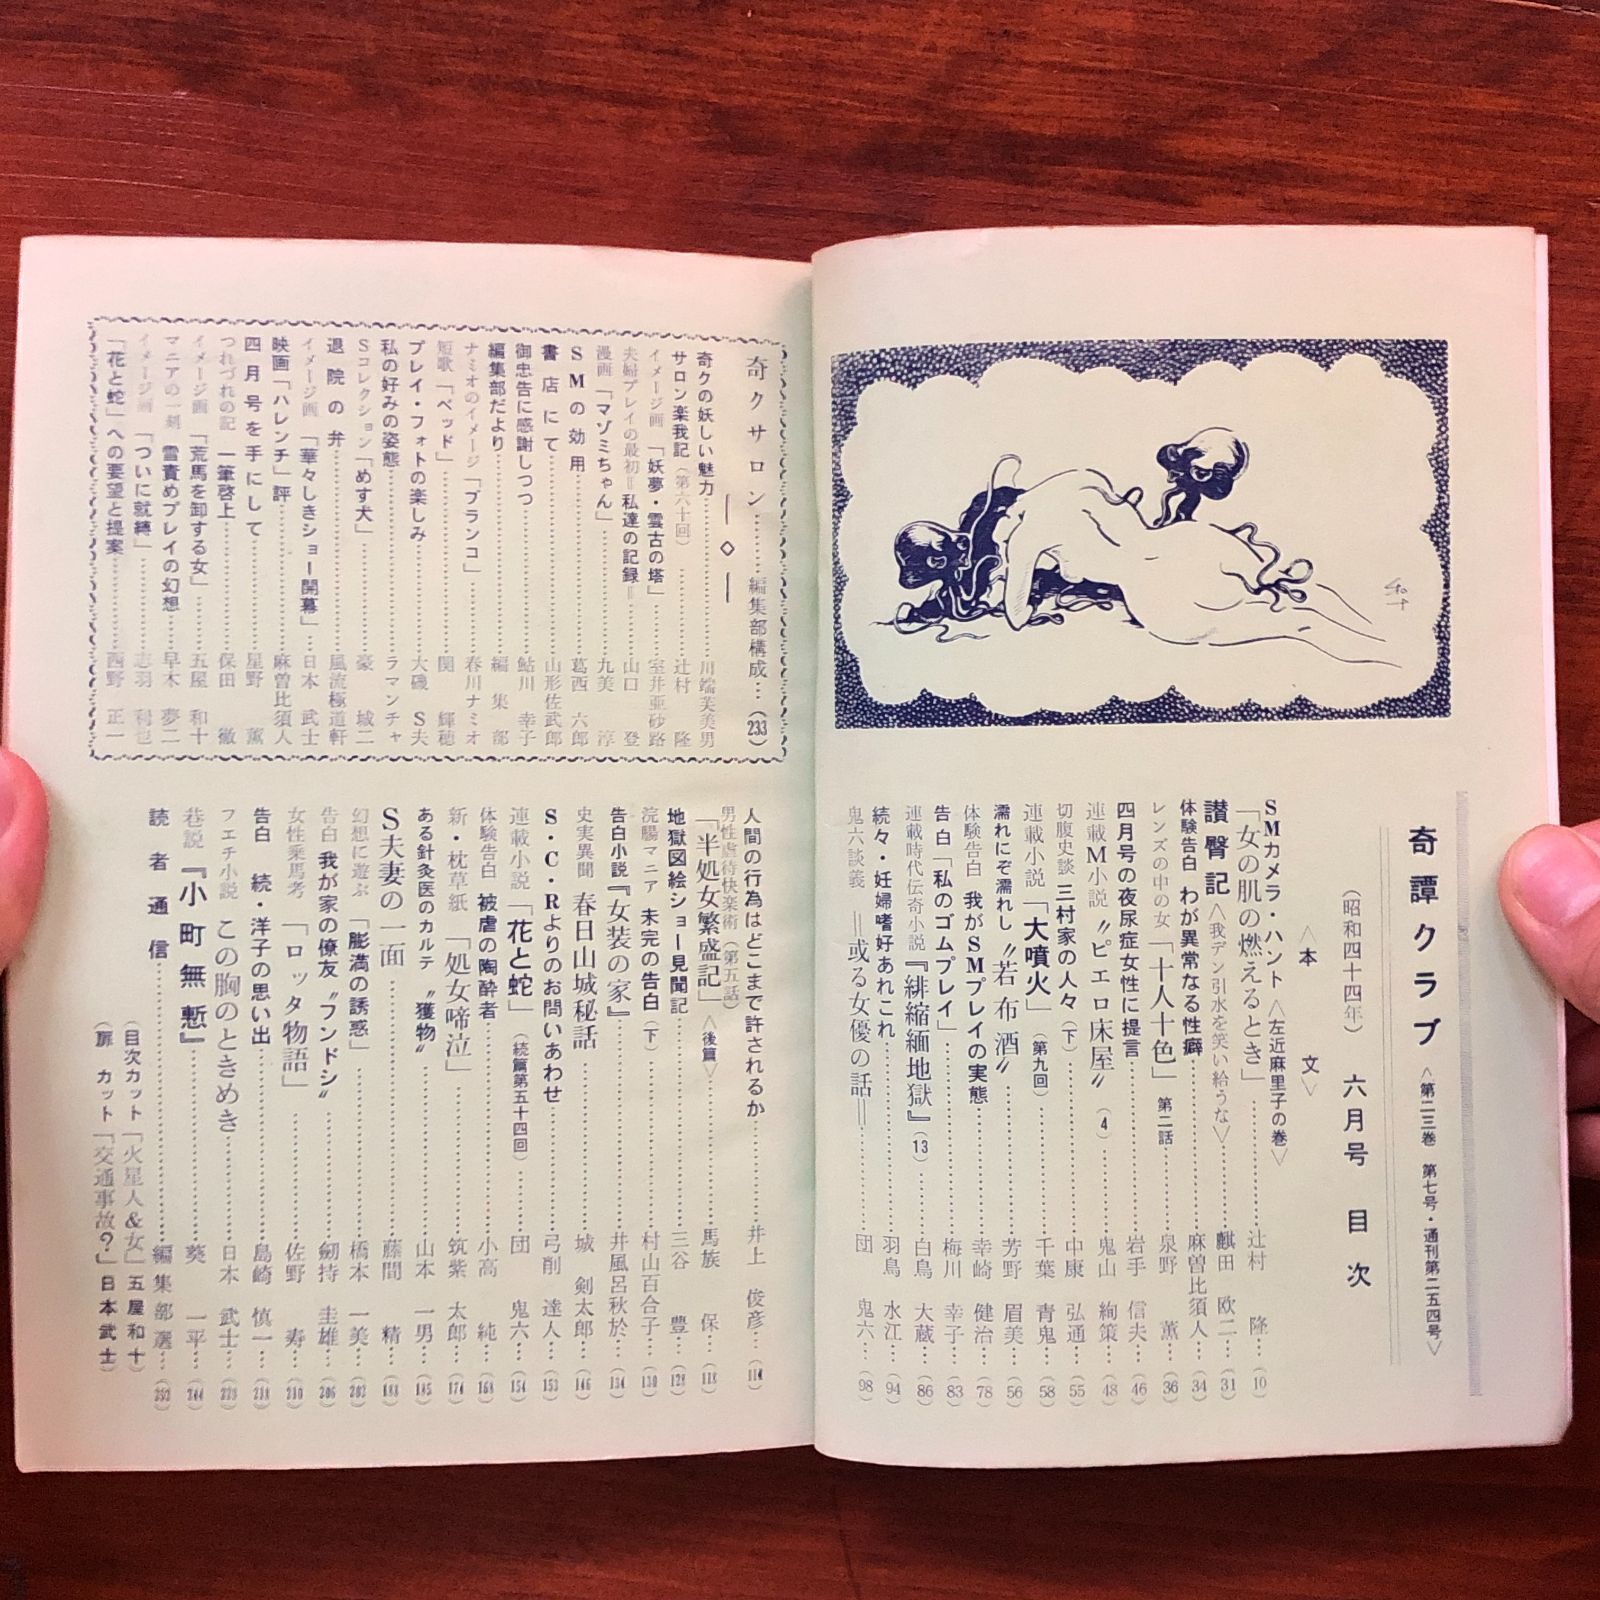 奇譚クラブ 〈第二三巻 第七号・通刊第二五四号〉
(昭和四十四年) 六月号 目次
〈本文〉
SMカメラ・ハント 〈左近麻里子の巻〉
「女の肌の燃えるとき」…………辻村 隆…(10)
讃臀記 〈我デン引水を笑い給うな〉…麒田 欧二…(31)
体験告白 わが異常なる性癖…………麻曽比須人…(34)
レンズの中の女 「十人十色」 第二話…………泉野 薫…(36)
四月号の夜尿症女性に提言…………岩手 信夫…(46)
連載M小説 〝ピエロ床屋〟(4)…………鬼山 絢策…(48)
切腹史談 三村家の人々(下)…………中康 弘通…(55)
連載小説 「大噴火」(第九回)…………千葉 青鬼…(58)
濡れにぞ濡れし 〝若布酒〟…………芳野 眉美…(56)
体験告白 我がSMプレイの実態…………幸崎 健治…(78)
告白 「私のゴムプレイ」…………梅川 幸子…(83)
連載時代伝奇小説 『緋縮緬地獄』(13)…………白鳥 大蔵…(86)
続々・妊婦嗜好あれこれ…………羽鳥 水江…(94)
鬼六談義 ＝或る女優の話＝…………団 鬼六…(98)
人間の行為はどこまで許されるか…………井上 俊彦…(114)
男性虐待快楽術(第五話)
「半処女繁盛記」 〈後篇〉…………馬族 保…(118)
地獄図絵ショー見聞記…………三谷 豊…(128)
浣腸マニア 未完の告白(下)…………村山百合子…(130)
告白小説『女装の家』…………井風呂秋於…(134)
史実異聞 春日山城秘話…………城 剣太郎…(146)
S・C・Rよりのお問いあわせ…………弓削 達人…(153)
連載小説 「花と蛇」(続篇第五十四回)…………団 鬼六…(154)
体験告白 被虐の陶酔者…………小高 純…(168)
新・枕草紙 「処女啼泣」…………筑紫 太郎…(174)
ある針灸医のカルテ 〝獲物〟…………山本 一男…(185)
S夫妻の一面…………藤間 精…(188)
幻想に遊ぶ 「膨満の誘惑」…………橋本 一美…(202)
告白 我が家の僚友〝フンドシ〟…………剱持 圭雄…(206)
女性乗馬考 「ロッタ物語」…………佐野 寿…(210)
告白 続・洋子の思い出…………島崎 慎一…(218)
フェチ小説 この胸のときめき…………日本 武士…(228)
巷説『小町無慙』…………葵 一平…(244)
読者通信…………編集部選…(252)
(目次カット「火星人＆女」五屋和十)
(扉 カット「交通事故？」日本武士)
奇クサロン…………編集部構成…(233)
奇クの妖しい魅力…………川端芙美男
サロン楽我記(第六十回)…………辻村 隆
イメージ画 「妖夢・雲古の塔」…………室井亜砂路
夫婦プレイの最初＝私達の記録＝…………山口 登
漫画 「マゾミちゃん」…………九美 淳
SMの効用…………葛西 六郎
書店にて…………山形佐武郎
御忠告に感謝しつつ…………鮎川 幸子
編集部だより…………編集部
ナミオのイメージ 「ブランコ」…………春川ナミオ
短歌 「ベッド」…………関 輝穂
プレイ・フォトの楽しみ…………大磯 S夫
私の好みの姿態…………ラマンチャ
Sコレクション 「めす犬」…………豪 城二
退院の弁…………風流極道軒
イメージ画 「華々しきショー開幕」…………日本 武士
映画「ハレンチ」評…………麻曽比須人
四月号を手にして…………星野 薫
つれづれの記 一筆啓上…………保田 徹
イメージ画 「荒馬を卸する女」…………五屋 和十
マニアの一刻 雪責めプレイの幻想…………早木 夢二
イメージ画 「ついに就縛」…………志羽 利也
「花と蛇」への要望と提案…………西野 正一